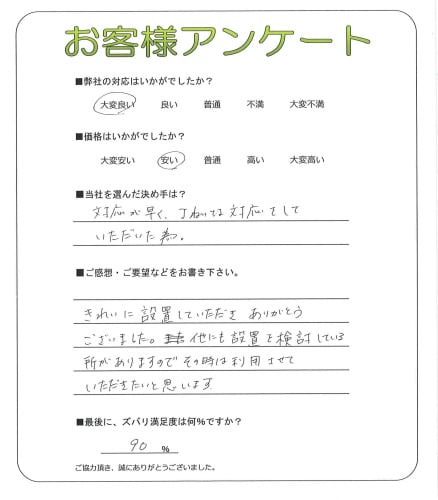 お客様アンケート
■弊社の対応はいかがでしたか？
大変良い 良い 普通 不満 大変不満
■価格はいかがでしたか？
大変安い 安い 普通 高い 大変高い
■当社を選んだ決め手は？
対応が早く、丁ねいな対応をして
いただいた為。
■ご感想・ご要望などをお書き下さい。
きれいに設置していただき ありがとう
ございました。他にも設置を検討している
所がありますので その時は利用させて
いただきたいと思います
■最後に、ズバリ満足度は何%ですか？
90 %
ご協力頂き、誠にありがとうございました。